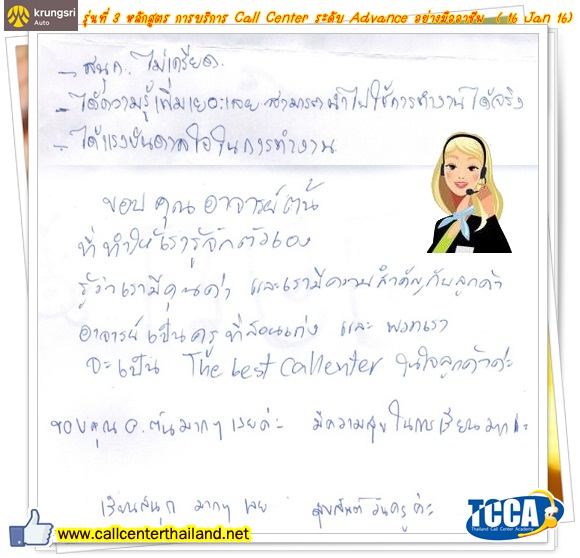 krungsri
Auto
รุ่นที่ 3 หลักสูตร การบริการ Call Center ระดับ Advance อย่างมืออาชีพ ( 16 Jan 16)
- สนุก. ไม่เครียด.
- ได้ความรู้เพิ่มเยอะเลย สามารถนำไปใช้การทำงานได้จริง
- ได้แรงบันดาลใจในการทำงาน
ขอบคุณอาจารย์ตั้น
ที่ทำให้เรารู้จักตัวเอง
รู้ว่าเรามีคุณค่า และเรามีความสำคัญกับลูกค้า
อาจารย์เป็นครูที่สอนเก่ง และ พวกเรา
จะเป็น The best Callenter ในใจลูกค้าค่ะ
ขอบคุณ อ.ตั้นมากๆ เลยค่ะ มีความสุขในการเรียนมาก
เรียนสนุก มากๆ เลย สุขสันต์วันครู ค่ะ
TCCA
Thailand Call Center Academy
www.callcenterthailand.net